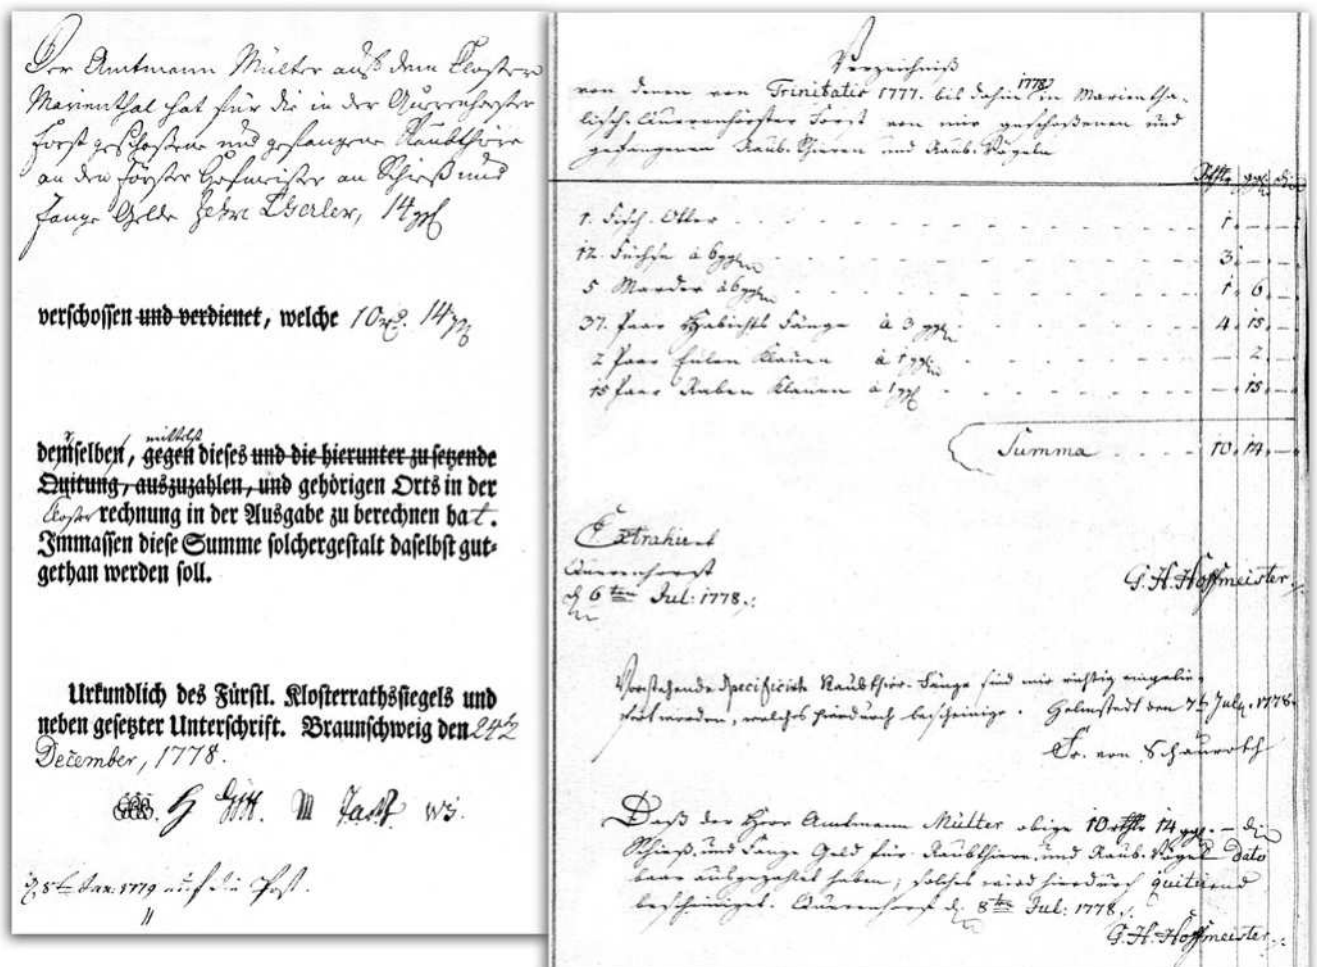 Der Amtmann Mülter aus dem Closter
Marienthal hat für die in der Querenhorster
Forst geschossene und gefangene Raubthiere
an den Förster Hofmeister an Schieß und
Fange Gelde Zehn Thaler, 14 ggl
verschossen und verdienet, welche 10 14
demselben, gegen dieses und die hierunter zu setzende
mittelst
Quitung, auszuzahlen, und gehörigen Orts in der
Closter rechnung in der Ausgabe zu berechnen hat.
Immassen diese Summe solchergestalt daselbst gut-
gethan werden soll.
Urkundlich des Fürstl. Klosterrathssiegels und
neben gesetzter Unterschrift. Braunschweig den 24t
December, 1778.
d. 8t Jan: 1779 auf die Post.
Verzeichniß
von denen von Trinitatis 1777. bis dahin 1778 in Marientha-
lisch-Querenhorster Forst von mir geschoßenen und
gefangenen Raub-Thieren und Raub-Vögeln
Rthlr ggl
1. Fisch-Otter 1. – –
12. Füchse à 6 ggl 3. – –
5 Marder à 6 ggl 1. 6. –
37. Paar Habichts Fänge à 3 ggl 4. 15. –
2 Paar Eulen Klauen à 1 ggl – 2. –
15 Paar Raben Klauen à 1 ggl – 15. –
Summa 10. 14. –
Extrahirt
Querenhorst
d. 6ten Jul: 1778.
G. H. Hoffmeister
Vorstehende specificirte Raubthier-Fänge sind mir richtig eingelie-
fert worden, welches hierdurch bescheinige. Helmstedt den 7t July. 1778.
Fr. von Schauroth
Daß der Herr Amtmann Mülter obige 10 rthlr 14 ggl. –
Schieß und Fange Geld für Raubthiere und Raub-Vögel dato
baar ausgezahlet haben, solches wird hierdurch quitirend
bescheiniget. Querenhorst d. 8ten Jul: 1778.
G. H. Hoffmeister